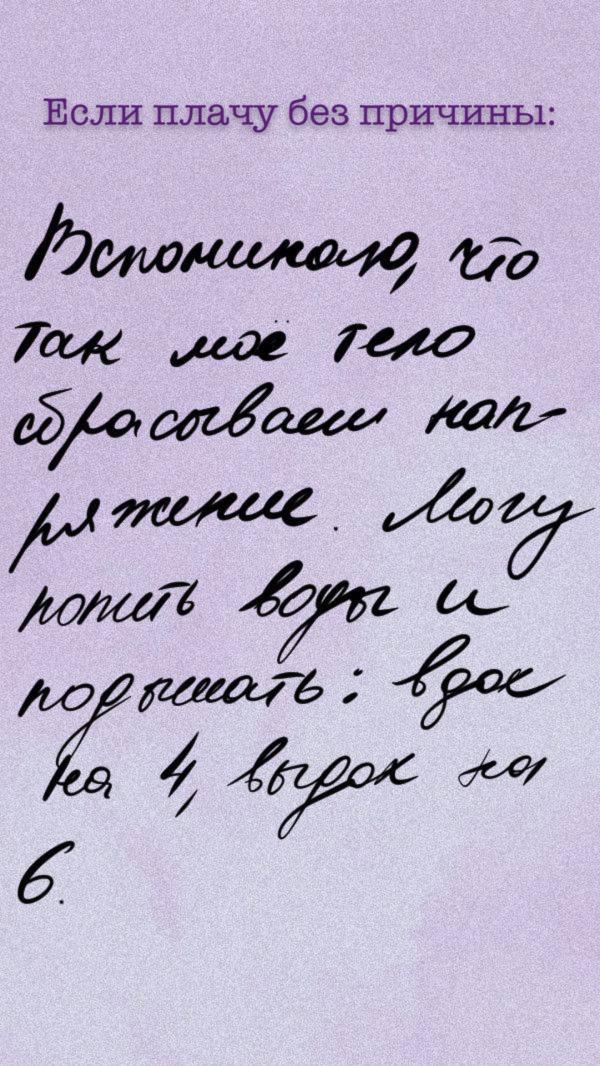 Если плачу без причины:
Вспоминаю, что
так моё тело
сбрасывает нап-
ряжение. Могу
попить воды и
подышать: вдох
на 4, выдох на
6.